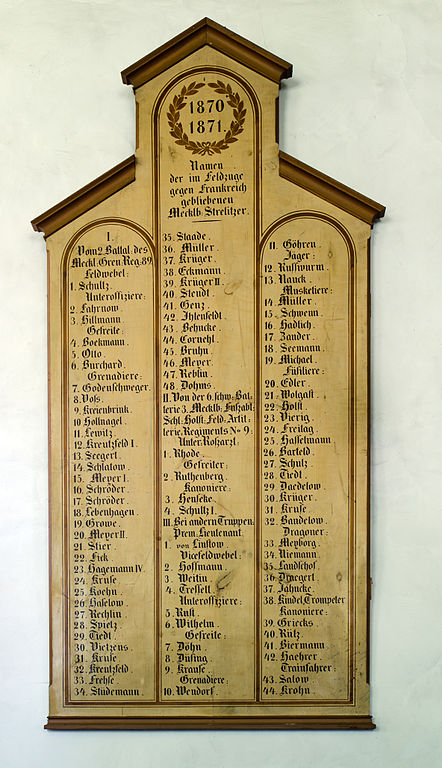 1870
1871.
Namen
der im Feldzuge
gegen Frankreich
gebliebenen
Mecklb. Strelitzer.
I.
Vom 2. Battal. des
Meckl. Gren. Reg. 89.
Feldwebel:
1. Schultz.
Unteroffiziere:
2. Fahrnow.
3. Hillmann.
Gefreite:
4. Boekmann.
5. Otto.
6. Burchard.
Grenadiere:
7. Godenschweger.
8. Voss.
9. Kreienbrink.
10. Hollnagel.
11. Lewitz.
12. Kreutzfeld I.
13. Seegert.
14. Schlatow.
15. Meyer I.
16. Schröder.
17. Schröder.
18. Lebenhagen.
19. Growe.
20. Meyer II.
21. Stier.
22. Fick.
23. Hagemann IV.
24. Kruse.
25. Koehn.
26. Haselow.
27. Rechlin.
28. Spietz.
29. Tiedl.
30. Vietzens.
31. Kruse
32. Kreutzfeld
33. Frehse
34. Studemann.
35. Staade.
36. Müller.
37. Krüger.
38. Eckmann.
39. Krüger II.
40. Stendt.
41. Genz.
42. Ihlenfeldt.
43. Behncke.
44. Cornehl.
45. Bruhn.
46. Meyer.
47. Reblin.
48. Dohms.
II. Von der 6. schw. Bat-
terie 3. Mecklb. Fußabt.
Schl. Holst. Feld. Artil-
lerie Regiments No 9:
Unter. Roßarzt.
1. Rhode.
Gefreiter:
2. Ruthenberg.
Kanoniere:
3. Henseke.
4. Schultz I.
III. Bei andern Truppen:
Prem. Lieutenant.
1. von Linstow.
Vicefeldwebel:
2. Hoffmann.
3. Weitin.
4. Tressell.
Unteroffiziere:
5. Rust.
6. Wilhelm.
Gefreite:
7. Döhn.
8. Düsing.
9. Krause.
Grenadiere:
10. Wendorf.
11. Göhren.
Jäger:
12. Russwurm.
13. Nauck.
Musketiere:
14. Müller.
15. Schwenn.
16. Hadlich.
17. Zander.
18. Seemann.
19. Michael.
Füsiliere:
20. Edler.
21. Wolgast.
22. Holst.
23. Vierig.
24. Freitag.
25. Hasselmann.
26. Barteld.
27. Schulz.
28. Tiedl.
29. Daedelow.
30. Krüger.
31. Kruse.
32. Bandelow.
Dragoner:
33. Meyborg.
34. Niemann.
35. Landschof.
36. Draegert.
37. Jahncke.
38. Kindel, Trompeter
Kanoniere:
39. Griecks.
40. Rütz.
41. Biermann.
42. Haehrer.
Trainfahrer:
43. Salow.
44. Krohn.